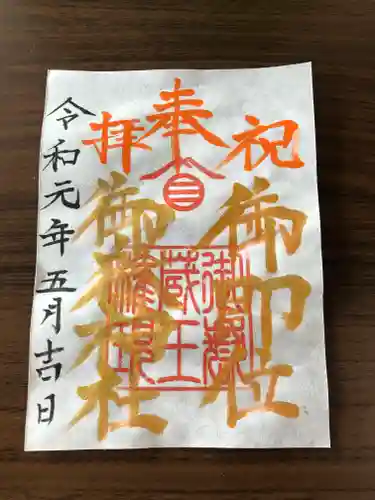 祝
御即位
奉拝
御嶽
蔵王
権現
神社
令和元年五月吉日